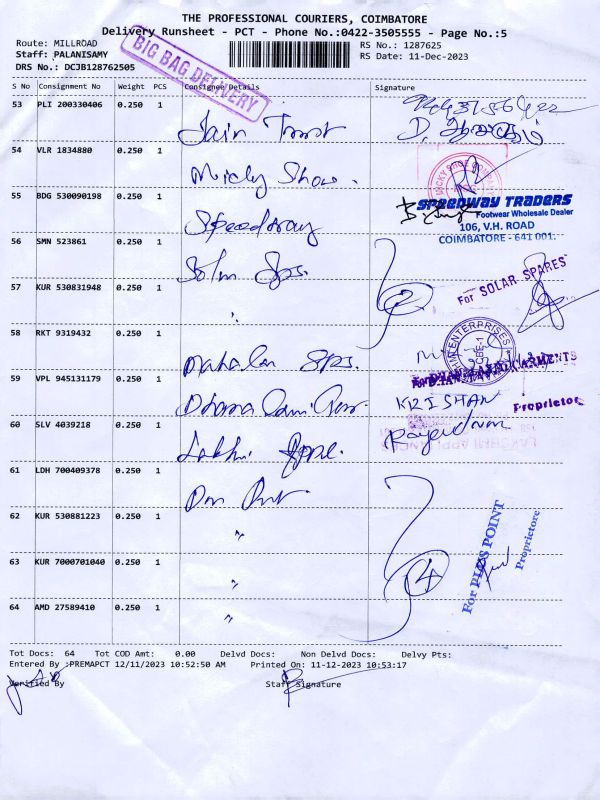 THE PROFESSIONAL COURIERS, COIMBATORE
Delivery Runsheet - PCT - Phone No.:0422-3505555 - Page No.:5
Route: MILLROAD
RS No.: 1287625
Staff: PALANISAMY
RS Date: 11-Dec-2023
DRS No.: DCJB128762505
BIG BAG DELIVERY
S No Consignment No Weight PCS Consignee Details Signature
53 PLI 200330406 0.250 1 Jain Trust
54 VLR 1834880 0.250 1 Micky Shoe.
55 BDG 530090198 0.250 1 Speedway
SPEEDWAY TRADERS
Footwear Wholesale Dealer
106, V.H. ROAD
COIMBATORE - 641 001.
56 SMN 523861 0.250 1 Solar Sps.
For SOLAR SPARES
57 KUR 530831948 0.250 1 "
2
58 RKT 9319432 0.250 1
ENTERPRISES
CBE-1
59 VPL 945131179 0.250 1
KRISHAN
Proprietor
60 SLV 4039218 0.250 1 Lakhmi Appl.
LAKSHMI APPLIANCES
61 LDH 700409378 0.250 1
62 KUR 530881223 0.250 1 "
63 KUR 7000701040 0.250 1 "
4
For PLUS POINT
Proprietore
64 AMD 27589410 0.250 1 "
Tot Docs: 64 Tot COD Amt: 0.00 Delvd Docs: Non Delvd Docs: Delvy Pts:
Entered By :PREMAPCT 12/11/2023 10:52:50 AM Printed On: 11-12-2023 10:53:17
Verified By Staff Signature